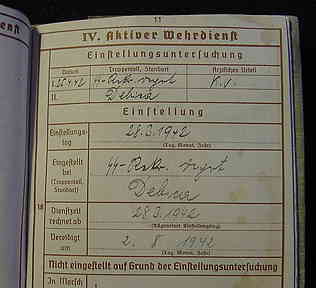 enst
11
IV. Aktiver Wehrdienst
Einstellungsuntersuchung
Datum
Truppenteil, Standort
Ärztliches Urteil
I.
K.V.
II. Debica
Einstellung
Einstellungs-
tag
28.3.1942
(Tag, Monat, Jahr)
Eingestellt
bei
(Truppenteil,
Standort)
Debica
Dienstzeit
rechnet ab
28.3.1942
(Allgemeiner Einstellungstag)
Vereidigt
am
2. 8 1942
(Tag, Monat, Jahr)
Nicht eingestellt auf Grund der Einstellungsuntersuchung
In Marsch